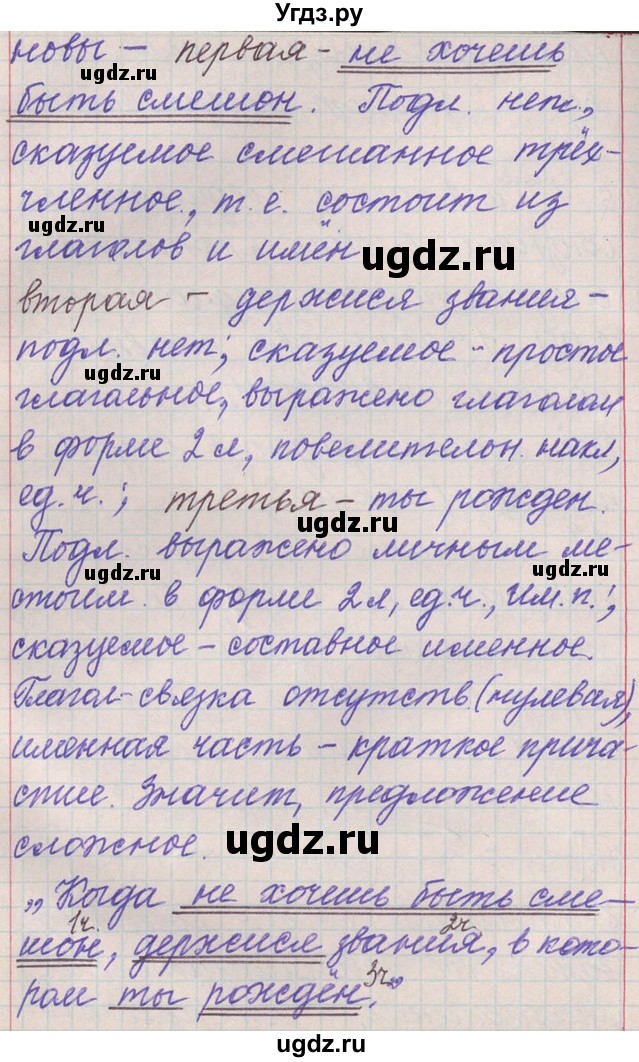 Угдз.ру
новы – первая – не хочешь
быть смешон. Подл. нет,
сказуемое смешанное трёх-
членное, т. е. состоит из
глаголов и имён
вторая – держися звания –
подл. нет; сказуемое – простое
глагольное, выражено глаголом
в форме 2 л, повелителон. накл,
ед. ч.; третья – ты рожден.
Подл. выражено личным ме-
стоим. в форме 2 л, ед. ч., Им. п.;
сказуемое – составное именное.
Глагол-связка отсутств. (нулевая),
именная часть – краткое прича-
стие. Значит, предложение
сложное.
„Когда не хочешь быть сме-
1ч. 2ч
шон, держися звания, в кото-
3ч
ром ты рождён."
ugdz.ru
ugdz.ru
ugdz.ru
ugdz.ru
ugdz.ru
ugdz.ru
ugdz.ru
ugdz.ru
ugdz.ru
ugdz.ru
ugdz.ru
ugdz.ru
ugdz.ru